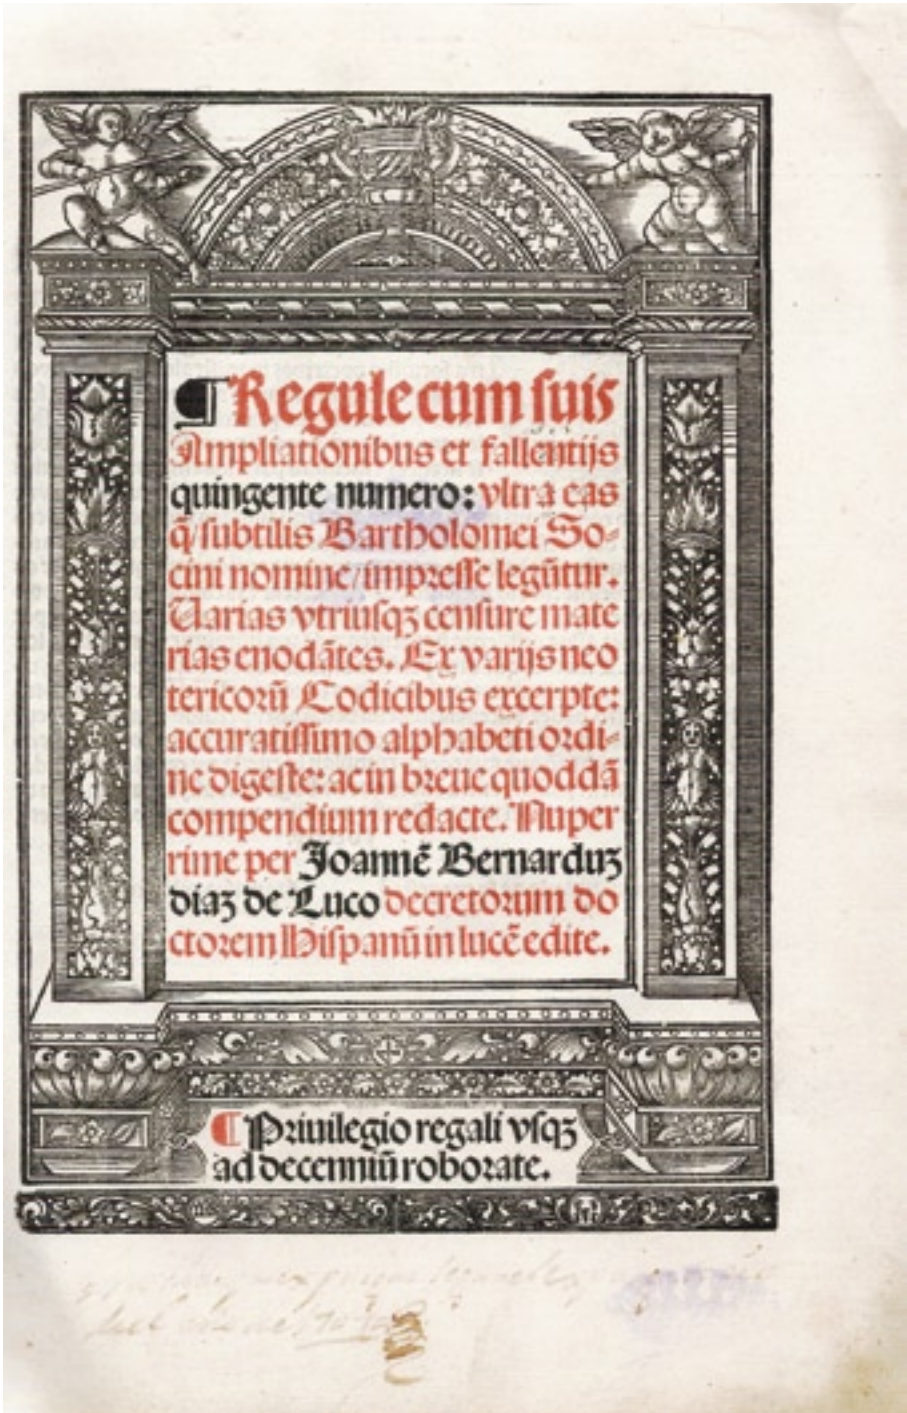 ¶ Regule cum suis
Ampliationibus et fallentijs
quingente numero: vltra eas
q̃ subtilis Bartholomei So-
cini nomine/impresse legũtur.
Varias vtriusqꝫ censure mate
rias enodãtes. Ex varijs neo
tericorũ Codicibus excerpte:
accuratissimo alphabeti ordi-
ne digeste: ac in breue quoddã
compendium redacte. Nuper
rime per Joannẽ Bernarduꝫ
diaz de Luco decretorum do
ctorem Hispanũ in lucẽ edite.
¶ Priuilegio regali vsqꝫ
ad decenniũ roborate.